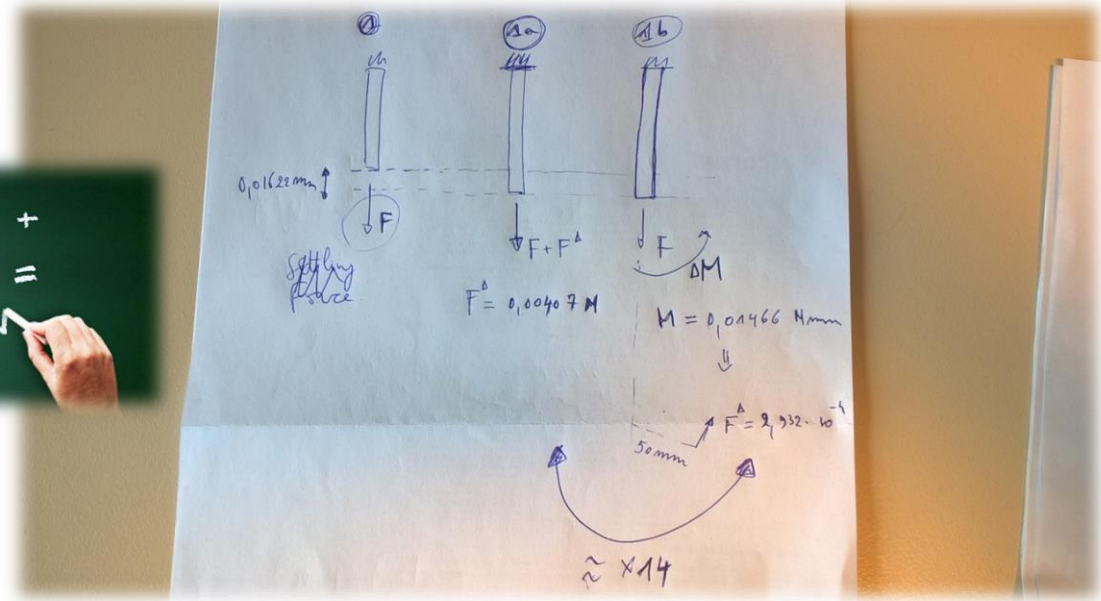 1 1a 1b
0,01622mm
F
Settling
force
F+F^Δ
F^Δ = 0,00407 N
F
ΔM
M = 0,01466 Nmm
⇓
F^Δ = 2,932·10^-4
50mm
≈ ×14
+
=